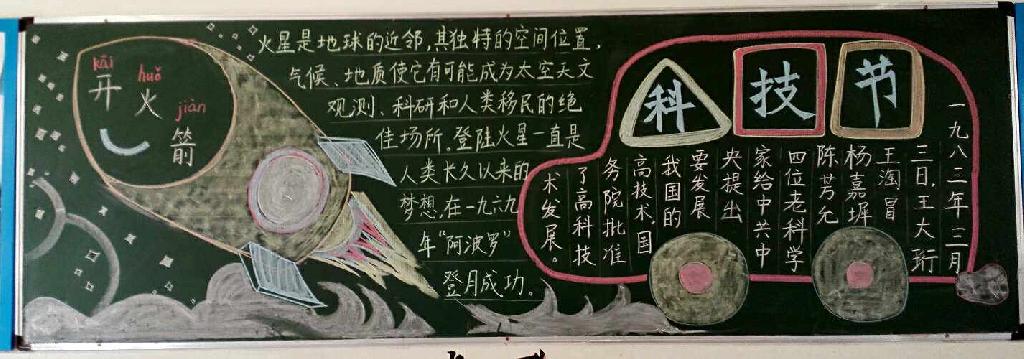 kāi
huǒ
jiàn
开
火
箭
火星是地球的近邻,其独特的空间位置,
气候、地质使它有可能成为太空天文
观测、科研和人类移民的绝
佳场所。登陆火星一直是
人类长久以来的
梦想,在一九六九
年“阿波罗”
登月成功。
科技节
一九八二年三月
三日,王大珩
王淘冒
杨嘉墀
陈芳允
四位老科学
家给中共中
央提出
要发展
我国的
高技术,国
务院批准
了高科技
术发展。